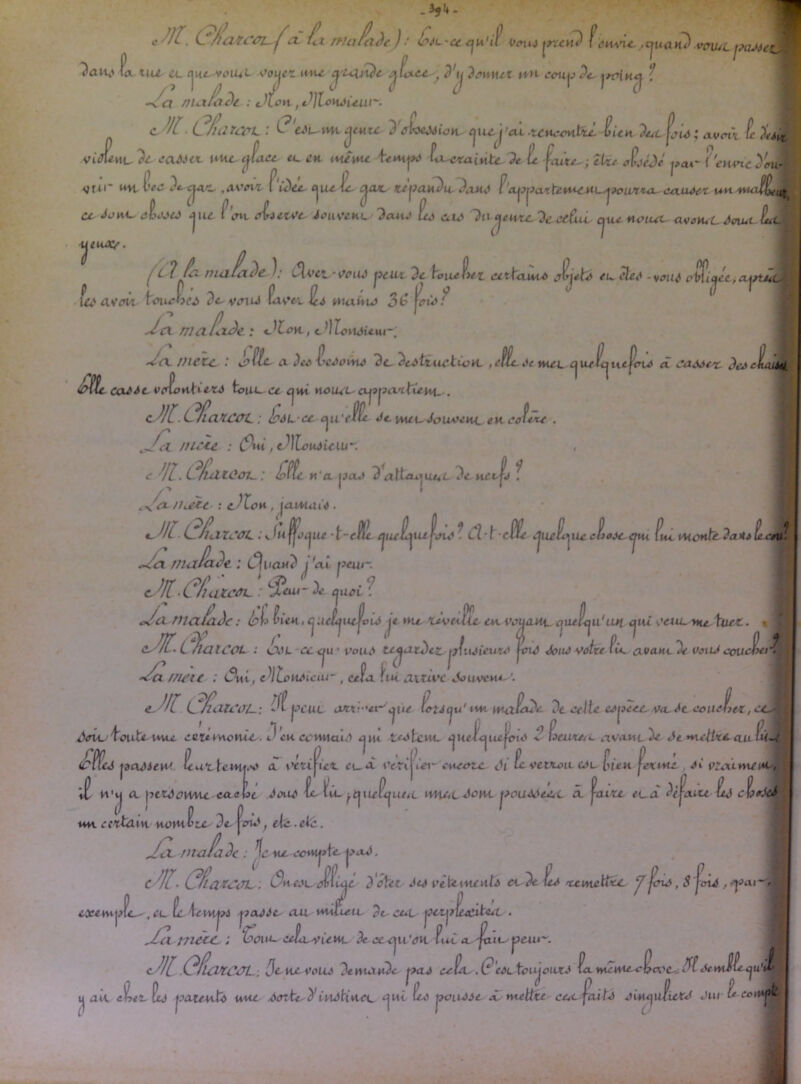 - 394 -
M. Charcot (à la malade) : Est-ce qu'il vous prend l'envie, quand vous passez
dans la rue et que vous voyez une grande glace, d'y donner un coup de poing ?
La malade : Non, Monsieur.
M. Charcot : C'est un genre d'obsession que j'ai rencontré bien des fois ; avoir le désir
violent de casser une glace et en même temps la crainte de le faire ; être obsédé par l'envie d'ou-
vrir un bec de gaz, avoir l'idée que le gaz répandu dans l'appartement pourra causer un malheur,
ce sont choses que l'on observe souvent dans les cas du genre de celui que nous avons sous les
yeux.
(A la malade) : Avez-vous peur de toucher certains objets et êtes-vous obligée, après
les avoir touchés de vous laver les mains 36 fois ?
La malade : Non, Monsieur.
La mère : Elle a des besoins de destruction, elle se met quelquefois à casser des chaises
Elle casse volontiers tout ce qui nous appartient.
M. Charcot : Est-ce qu'elle se met souvent en colère.
La mère : Oui, Monsieur.
M. Charcot : Elle n'a pas d'attaques de nerfs ?
La mère : Non, jamais.
M. Charcot : Suffoque-t-elle quelquefois ? A-t-elle quelque chose qui lui monte dans le cou ?
La malade : Quand j'ai peur.
M. Charcot : Peur de quoi ?
La malade : Eh bien, quelquefois je me réveille en voyant quelqu'un qui veut me tuer.
M. Charcot : Est-ce que vous regardez plusieurs fois sous votre lit avant de vous coucher ?
La mère : Oui, Monsieur, cela lui arrive souvent.
M. Charcot : Il peut arriver que lorsqu'un malade de cette espèce va se coucher, ce
soit toute une cérémonie. J'en connais qui restent quelquefois 2 heures avant de se mettre au lit
Elles passent leur temps à vérifier et à vérifier encore si le verrou est bien fermé, si vraiment
il n'y a personne caché sous le lit ; quelques unes sont poussées à faire et à défaire les choses
un certain nombre de fois, etc. etc.
La malade : Je ne compte pas.
M. Charcot : On est obligé d'ôter ses vêtements et de les remettre 7 fois, 8 fois, par
exemple, et le temps passe au milieu de ces perplexités.
La mère : Tout cela vient de ce qu'on lui a fait peur.
M. Charcot : Je ne vous demande pas cela. C'est toujours la même chose. Il semble qu'il
y ait chez les parents une sorte d'instinct qui les pousse à mettre ces faits singuliers sur le compte